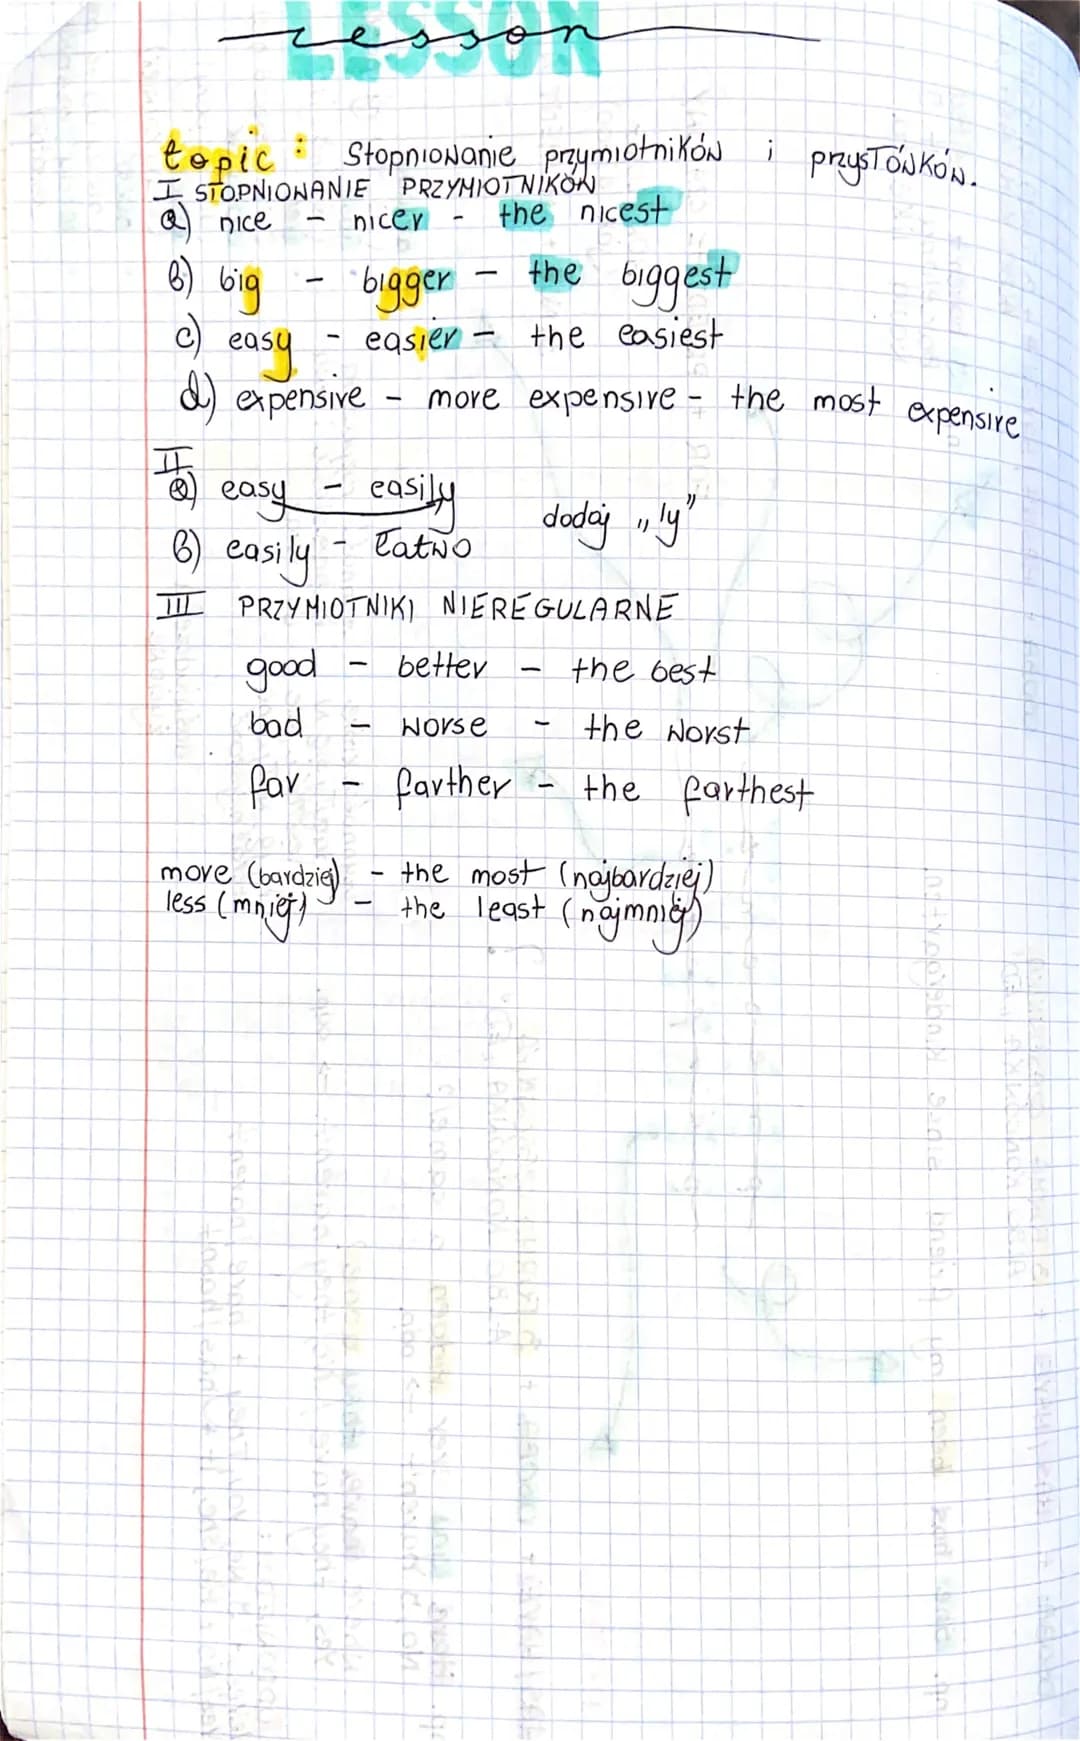 LESSON
lesson
topic: Stopniowanie przymiotników i przysłówków.
I STOPNIOWANIE PRZYMIOTNIKÓW
a) nice - nicer - the nicest
b) big - bigger - the biggest
c) easy - easier - the easiest
d) expensive - more expensive - the most expensive
II
a) easy - easily dodaj „ly”
b) easily - łatwo
III PRZYMIOTNIKI NIEREGULARNE
good - better - the best
bad - worse - the worst
far - farther - the farthest
more (bardziej) - the most (najbardziej)
less (mniej) - the least (najmniej)